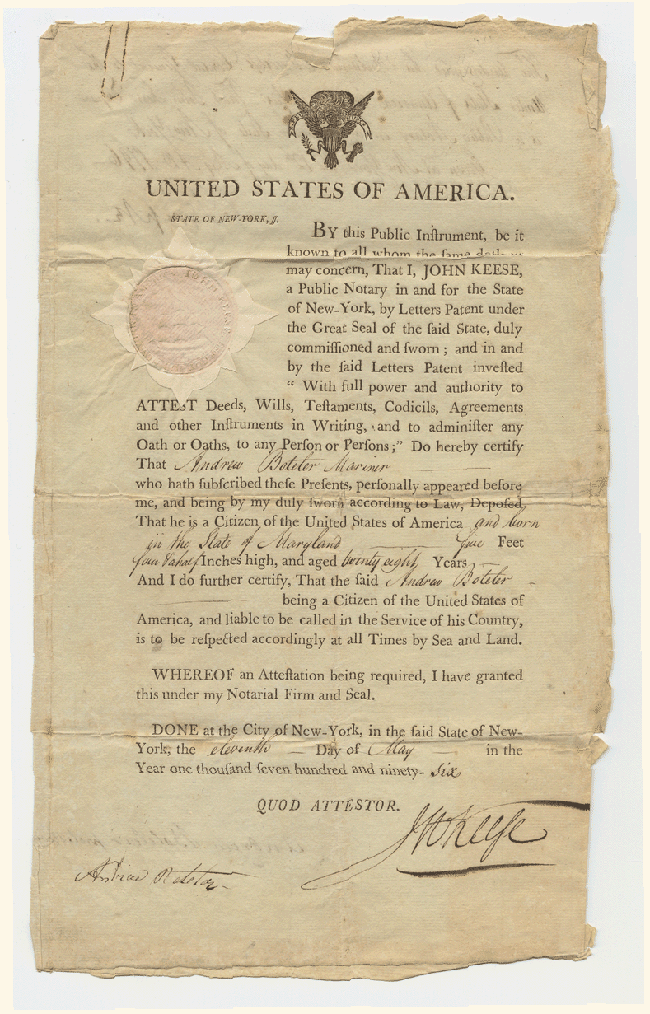 UNITED STATES OF AMERICA.
STATE OF NEW-YORK, ſſ.
BY this Public Inſtrument, be it
known to all whom the ſame doth or
may concern, That I, JOHN KEESE,
a Public Notary in and for the State
of New-York, by Letters Patent under
the Great Seal of the ſaid State, duly
commiſſioned and ſworn; and in and
by the ſaid Letters Patent inveſted
“ With full power and authority to
ATTEST Deeds, Wills, Teſtaments, Codicils, Agreements
and other Inſtruments in Writing, and to adminiſter any
Oath or Oaths, to any Perſon or Perſons;” Do hereby certify
That Andrew Boteler Mariner
who hath ſubſcribed theſe Preſents, perſonally appeared before
me, and being by my duly ſworn according to Law, Depoſed,
That he is a Citizen of the United States of America and born
in the State of Maryland five Feet
four & half Inches high, and aged twenty eight Years
And I do further certify, That the ſaid Andrew Boteler
being a Citizen of the United States of
America, and liable to be called in the Service of his Country,
is to be reſpected accordingly at all Times by Sea and Land.
WHEREOF an Atteſtation being required, I have granted
this under my Notarial Firm and Seal.
DONE at the City of New-York, in the ſaid State of New-
York, the eleventh Day of May in the
Year one thouſand ſeven hundred and ninety- ſix
QUOD ATTESTOR.
Jn Keeſe
Andrew Boteler